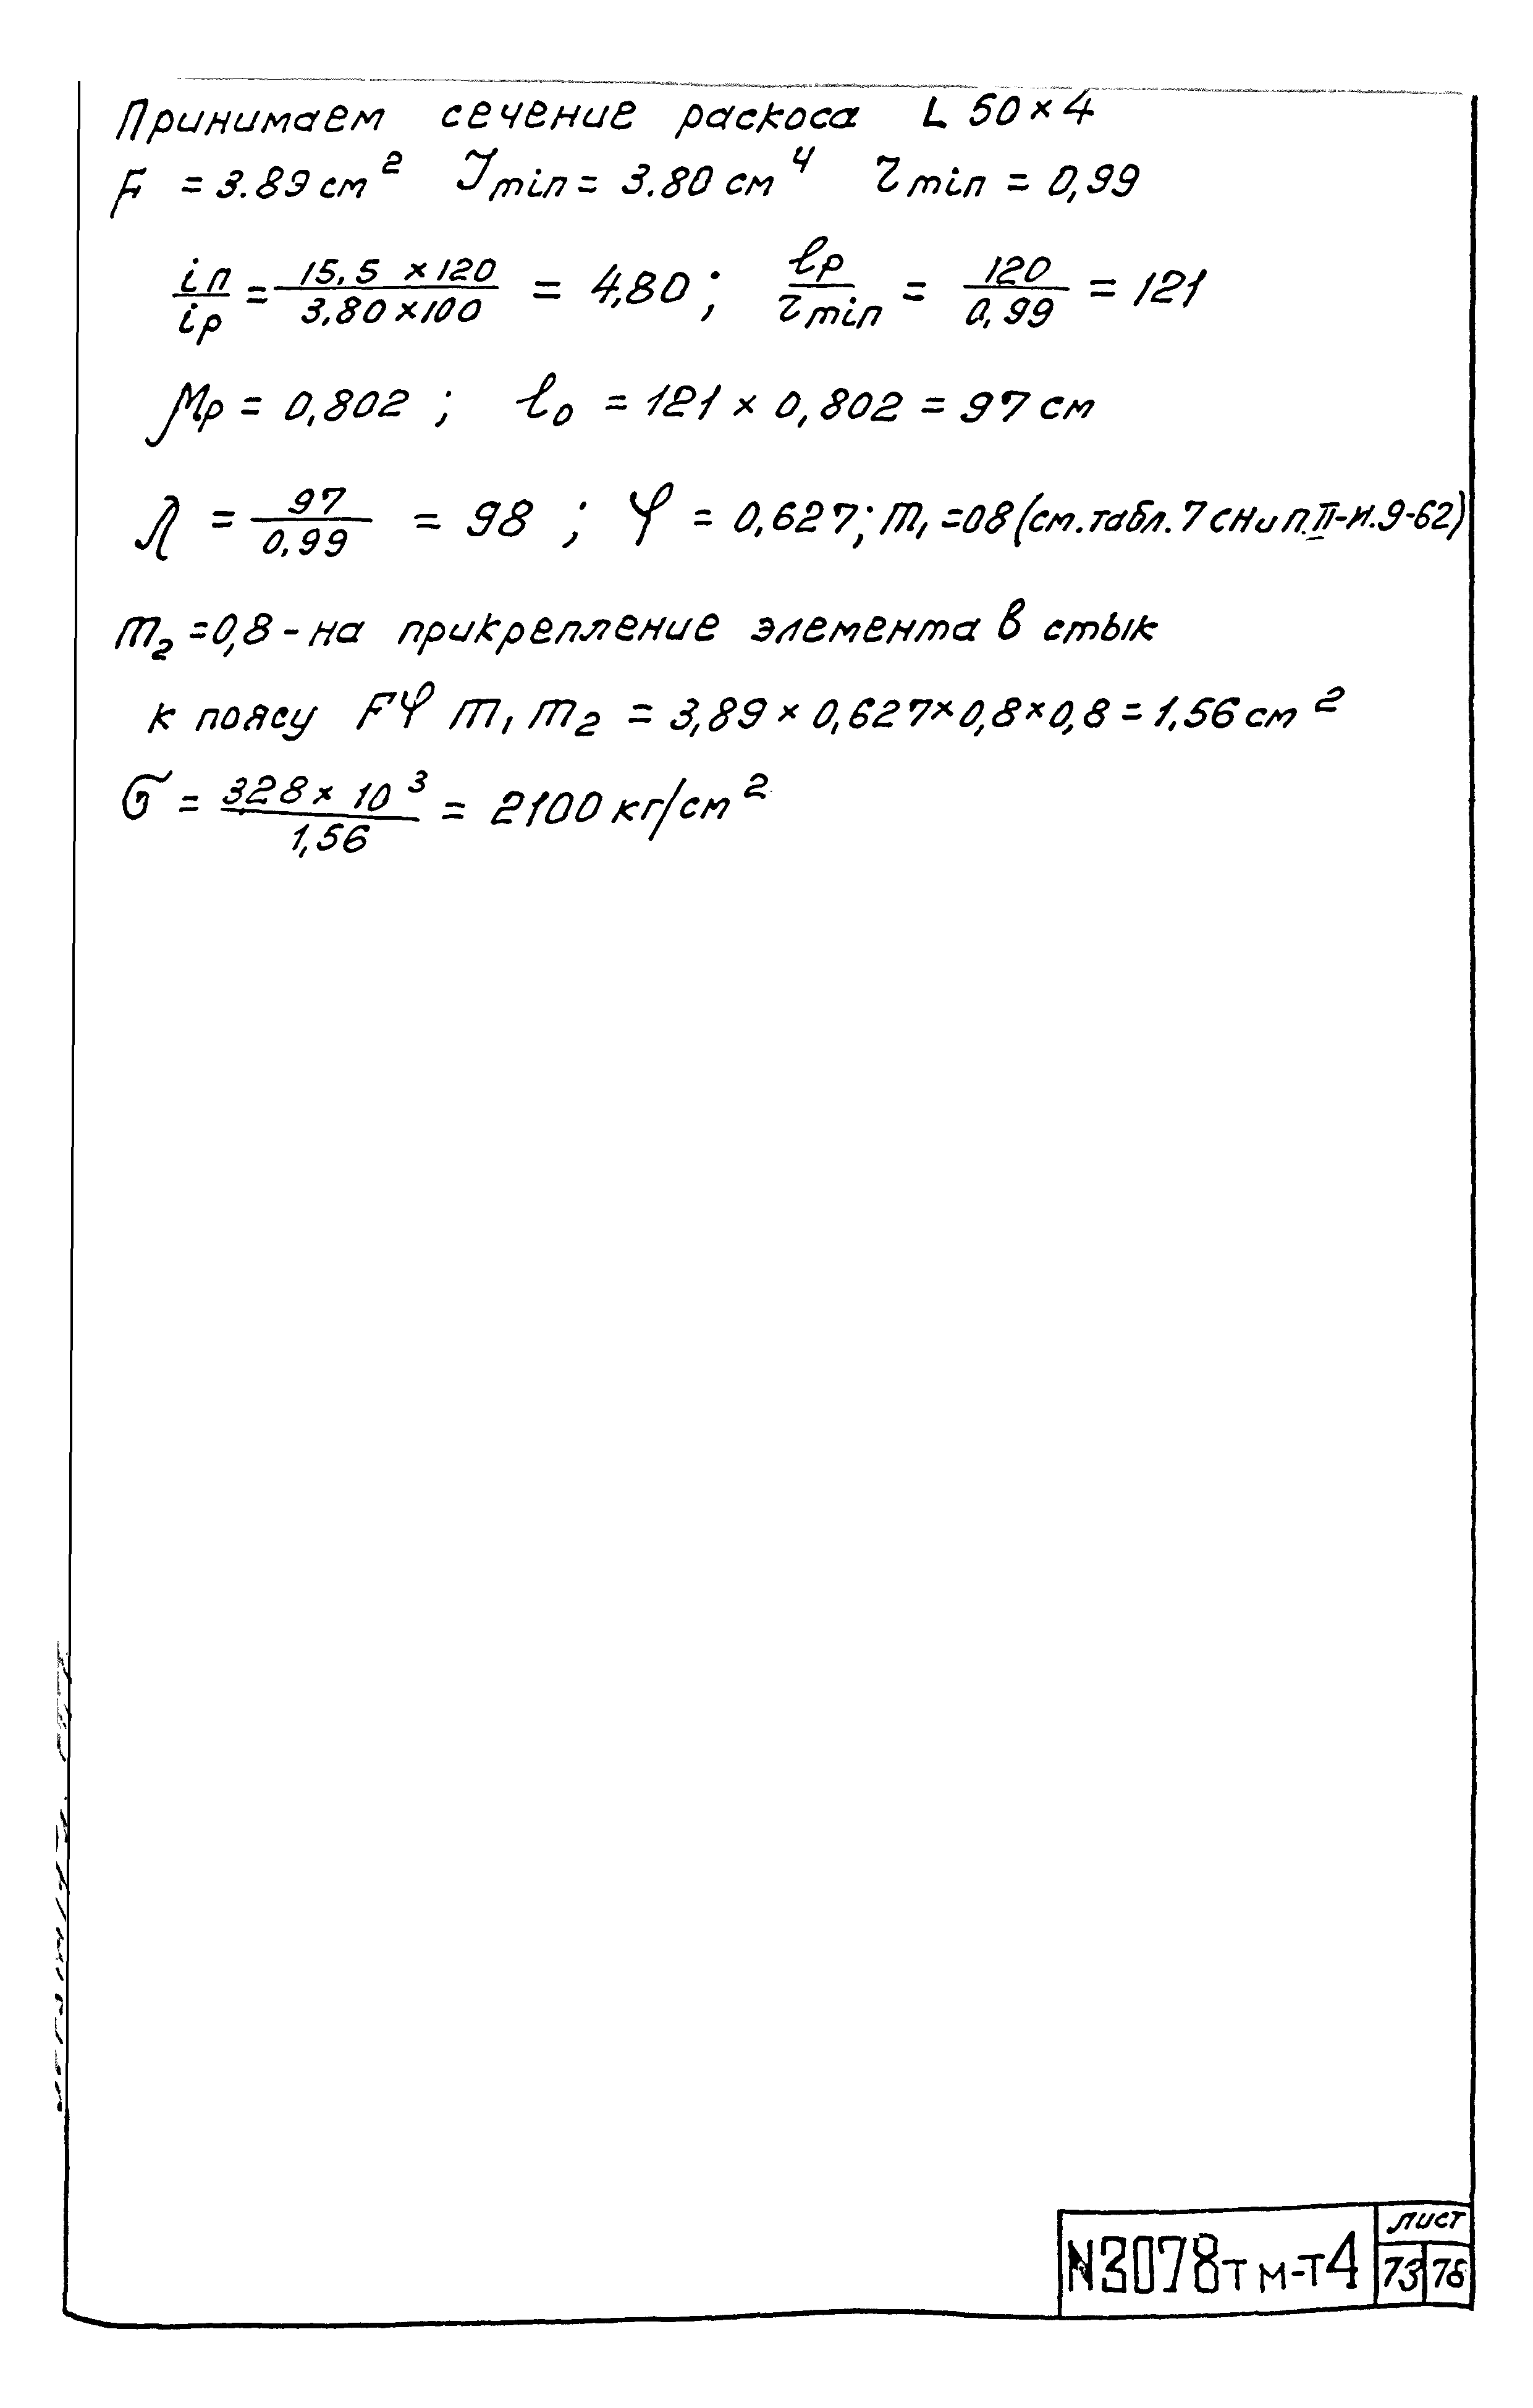 Принимаем сечение раскоса L 50×4
F = 3.89 см² Jmin = 3.80 см⁴ τmin = 0,99
iп/iр = 15,5 × 120 / 3,80 × 100 = 4,80 ; ℓр/τmin = 120/0,99 = 121
μр = 0,802 ; ℓ₀ = 121 × 0,802 = 97 см
λ = 97/0,99 = 98 ; φ = 0,627; m₁ = 08 (см. табл. 7 СНиП. II-И.9-62)
m₂ = 0,8 - на прикрепление элемента в стык
к поясу Fφ m₁ m₂ = 3,89 × 0,627 × 0,8 × 0,8 = 1,56 см²
σ = 328 × 10³ / 1,56 = 2100 кг/см²
лист
N3078тм-т4 73 78